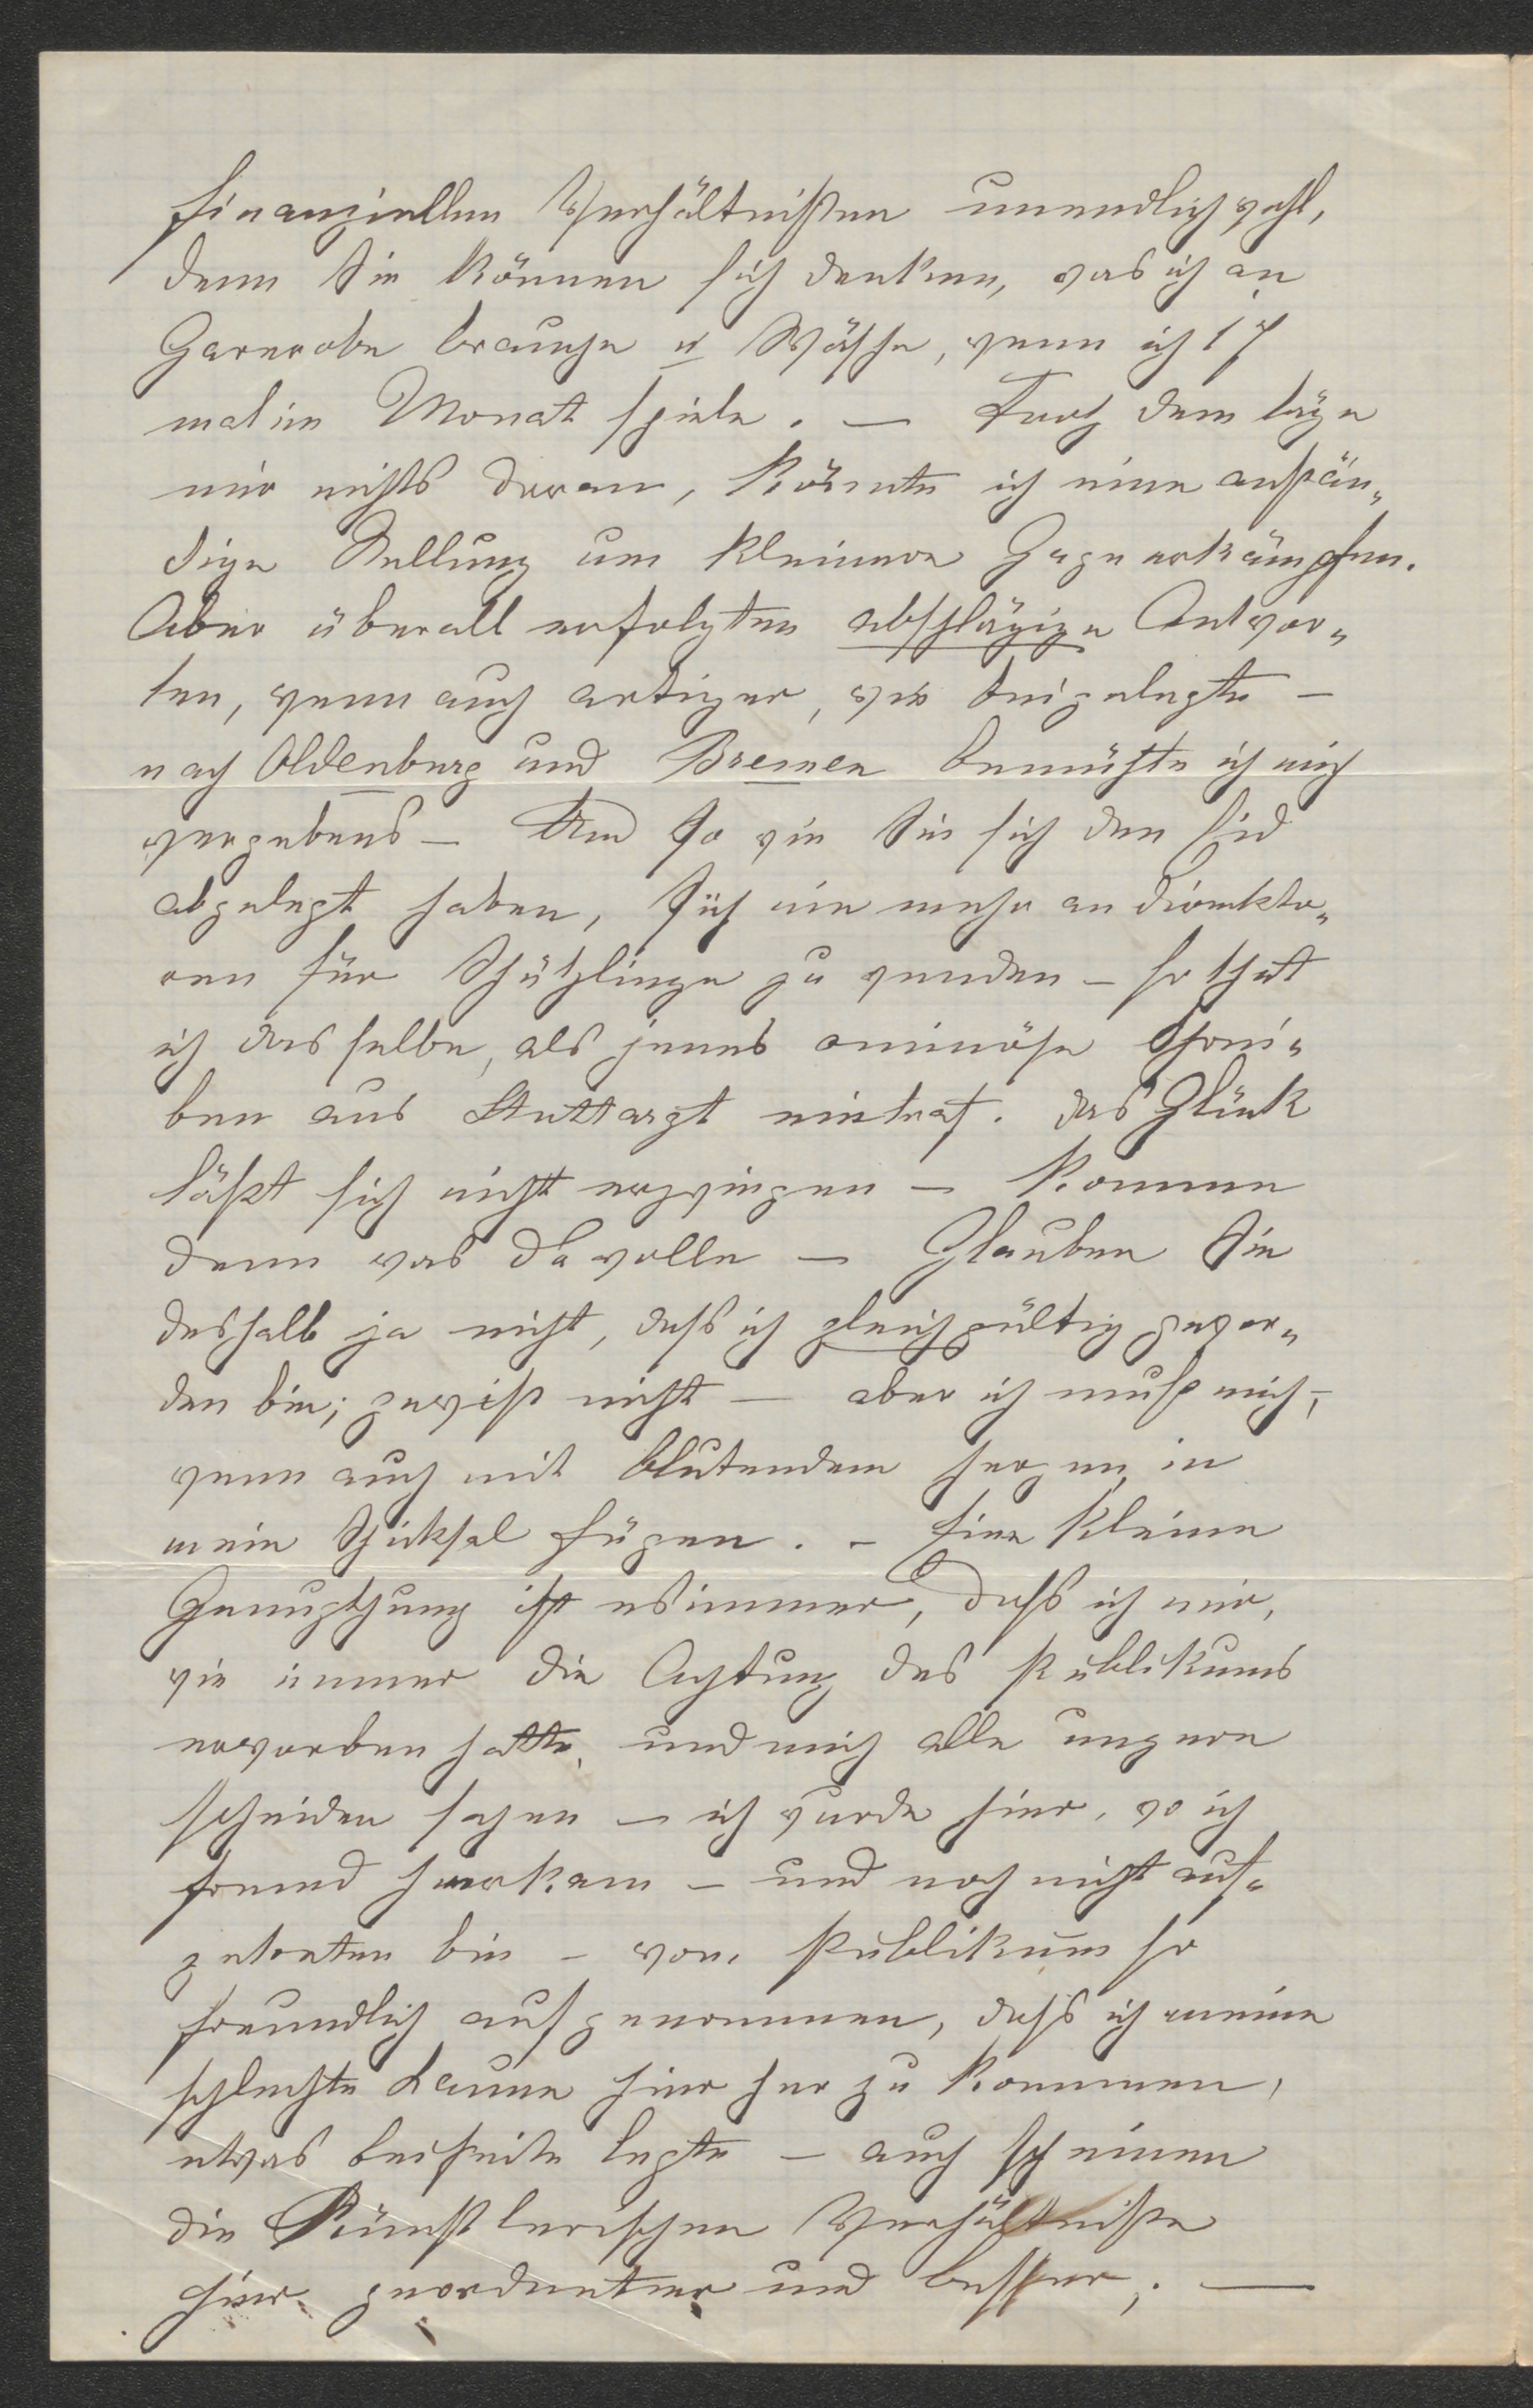 finanziellen Verhältnißen unendlich wohl,
denn Sie können sich denken, was ich an
Garerobe brauche u Wäsche, wenn ich 17
mal im Monat spiele. — Trotz dem läge
mir nichts daran, könnte ich eine anstän„
dige Stellung um kleinere Gage erkämpfen.
Aber überall erfolgten abschlägige Antwor„
ten, wenn auch artiger, wie beigelegte —
nach Oldenburg und Bremen bemühte ich mich
vergebens — Und so wie Sie sich den Eid
abgelegt haben, sich nie mehr an Direkto„
ren für Schützlinge zu wenden — so that
ich das selbe, als jenes ominöse Schrei„
ben aus Stuttargt eintraf. Das Glück
läßt sich nicht erzwingen — Komme
denn was da wolle — Glauben Sie
deshalb ja nicht, daß ich gleichgültig gewor„
den bin; gewiß nicht — aber ich muß mich,
wenn auch mit blutendem Herzen in
mein Schicksal fügen. – Eine kleine
Genugthung ist es immer, daß ich mir,
wie immer die Achtung des Publikums
erworben hatte, und mich alle ungern
scheiden sahen — ich wurde hier, wo ich
fremd herkam — und noch nicht auf„
getreten bin – vom Publikum so
freundlich aufgenommen, daß ich meine
schlechte Laune hier her zu kommen,
etwas beiseite legte — auch scheinen
die künstlerischen Verhältniße
hier geordneter und besser; —